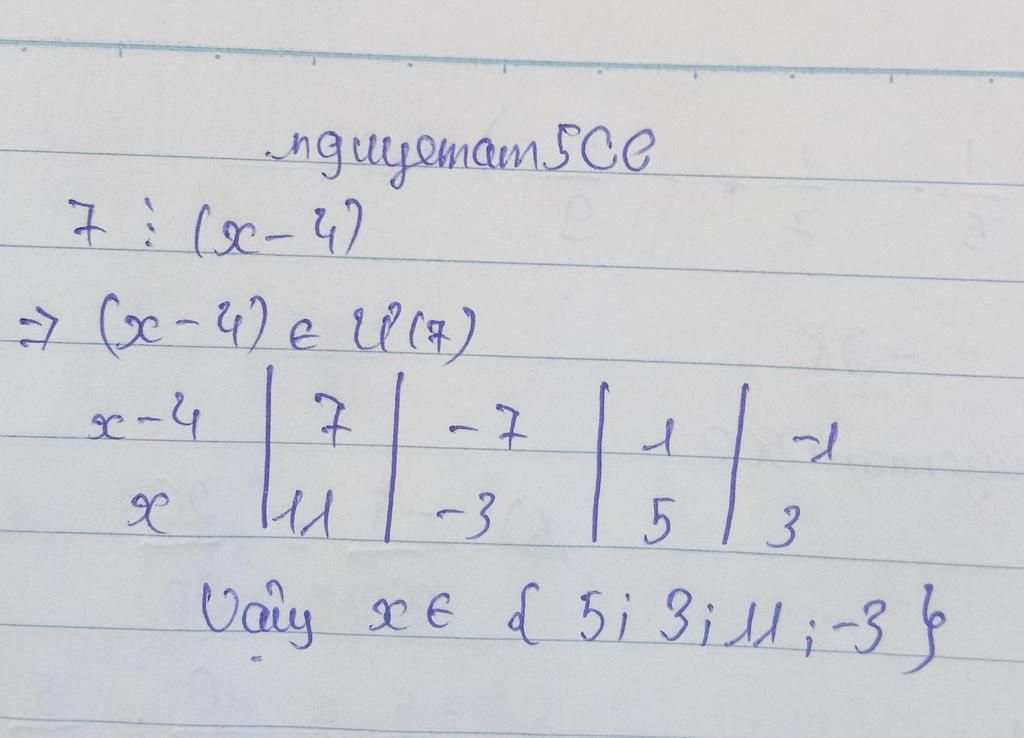 nguyetam5CC
7 ⋮ (x - 4)
=> (x - 4) ∈ Ư(7)
x - 4 | 7 | -7 | 1 | -1
x | 11 | -3 | 5 | 3
Vậy x ∈ { 5; 3; 11; -3 }